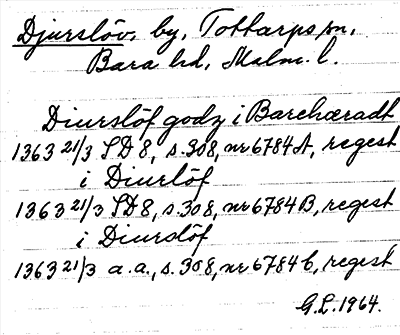 Djurslöv, by, Tottarps sn,
Bara hd, Malm. l.
Diurslöf godz i Barehæradt
1363 21/3 SD 8, s. 308, nr 6784 A, regest
i Diurlöf
1363 21/3 SD 8, s. 308, nr 6784 B, regest
i Diurslöf
1363 21/3 a.a., s. 308, nr 6784 C, regest
G.L. 1964.